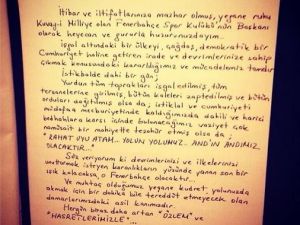 İtibar ve iltifatlarınıza mazhar olmuş, yegane ruhu
Kuvay-i Milliye olan Fenerbahçe Spor Kulübü'nün Başkanı
olarak heyecan ve gururla huzurunuzdayım.
İşgal altındaki bir ülkeyi, çağdaş, demokratik bir
Cumhuriyet haline getiren irade ve devrimlerinize sahip
çıkmak konusundaki kararlılığımız ve mücadelemiz tamdır.
İstikbalde dahi bir gün;
Yurdun tüm toprakları işgal edilmiş, tüm
tersanelerine girilmiş, bütün kaleler zaptedilmiş ve bütün
orduları dağıtılmış olsa da; istiklal ve cumhuriyeti
müdafaa mecburiyetinde kaldığımızda dahili ve harici
bedhahlara karşı içinde bulunacağımız vaziyet çok
namüsait bir mahiyette tezahür etmiş olsa da;
"RAHAT UYU ATAM... YOLUN YOLUMUZ, ANDIN ANDIMIZ
OLACAKTIR..."
Söz veriyorum ki devrimlerinizi ve ilkelerinizi
unutturmak isteyen karanlıkların yüzünde yanan son bir
ışık kalacaksa, o Fenerbahçe olacaktır...
Ve muhtaç olduğumuz yegane kudret, yolunuzda
akmak için bir dakika bile tereddüt etmeyecek olan
damarlarımızdaki asil kanımızdır.
Hergün biraz daha artan "ÖZLEM" ve
"HASRETLERİMİZLE"...